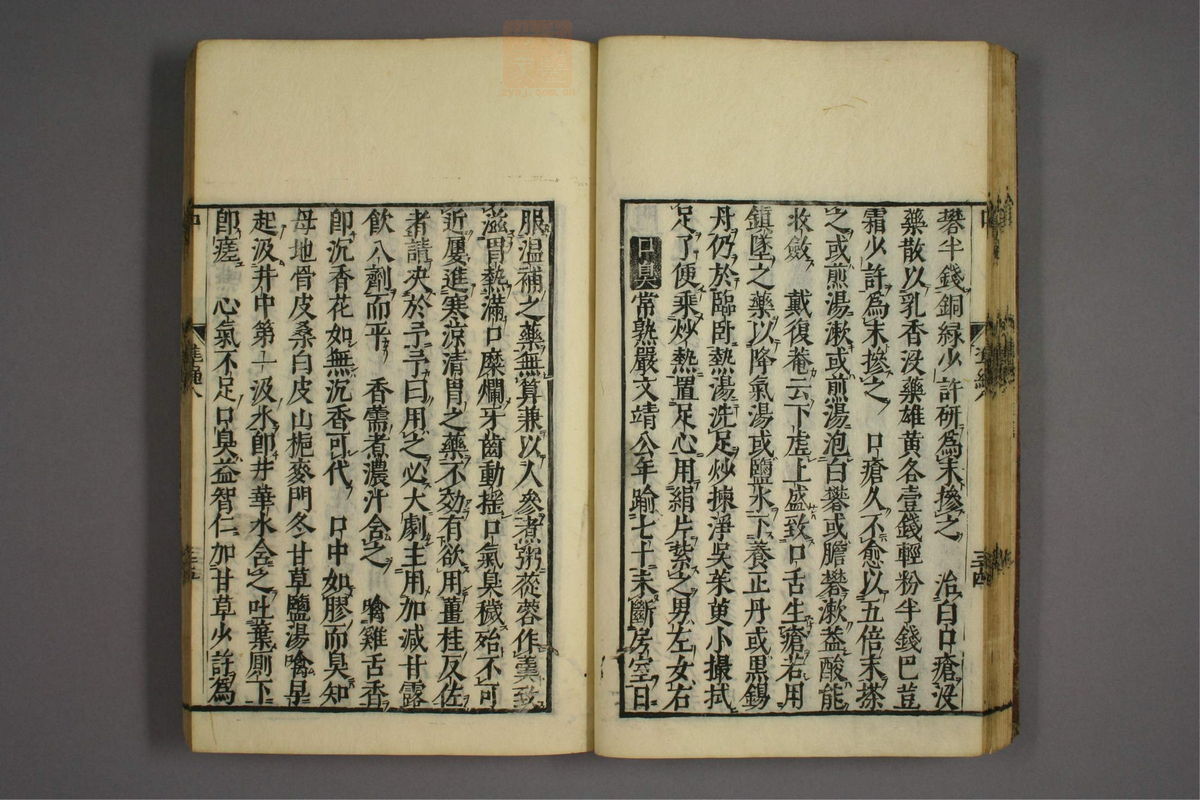 礬半錢銅緑少許研為末摻之　治白口瘡没
藥散以乳香没藥雄黄各壹錢輕粉半錢巴荳
霜少許為末摻之　口瘡久不愈以五倍末搽
之或煎湯漱或煎湯泡白礬或膽礬漱葢酸能
收斂　戴復菴云下虚上盛致口舌生瘡若用
鎮墜之藥以降氣湯或鹽水下養正丹或黒錫
丹仍於臨卧熱湯洗足炒揀淨吳茱萸小撮拭
足了便乘炒熱置足心用絹片紮之男左女右
口臭常熟嚴文靖公年踰七十未斷房室日
服温補之藥無算兼以人參煮粥蓯蓉作羹致
滋胃熱滿口糜爛牙齒動摇口氣臭穢殆不可
近屢進寒凉清胃之藥不効有欲用薑桂反佐
者請决於予予曰用之必大劇主用加減甘露
飲八劑而平　香薷煮濃汁含之　噙雞舌香
即沉香花如無沉香可代　口中如膠而臭知
母地骨皮桑白皮山梔麥門冬甘草鹽湯噙早
起汲井中第一汲水即井華水含之吐棄厠下
即瘥　心氣不足口臭益智仁加甘草少許為